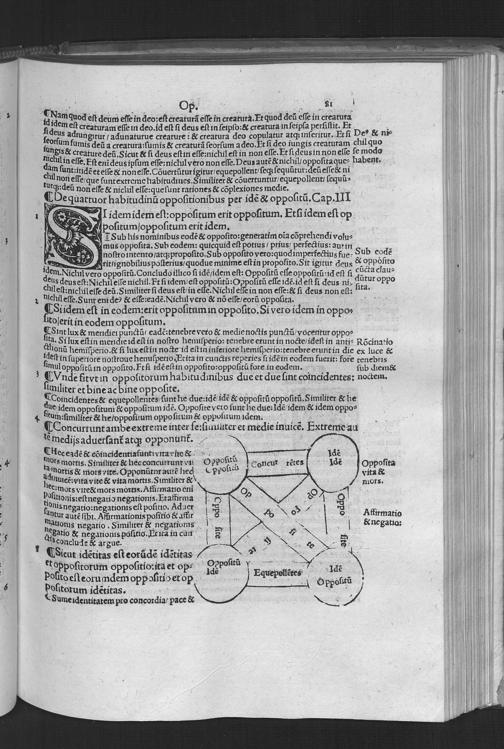 Op. 81
¶Nam quod est deum esse in deo: est creaturā esse in creaturā. Et quod deū esse in creatura
id idem est creaturam esse in deo. id est si deus est in seipso: & creatura in seipsa persistit. Et
si deus adiungitur / adunaturue creature: & creatura deo copulatur atqȝ inseritur. Et si
seorsum sumis deū a creatura: sumis & creaturā seorsum a deo. Et si deo iungis creaturam
iungis & creature deū. Sicut & si deus est in esse: nichil est in non esse. Et si deus in non esse
nichil in esse. Est eni deus ipsum esse: nichil vero non esse. Deus autē & nichil / opposita que
dam sunt: inde et esse & non esse. Cōuertūtur igitur: equepollent: seqȝ sequūtur: deū esse & ni
chil non esse: que sunt extreme habitudines. Similiter & cōuertuntur: equepollent: sequū
turqȝ: deū non esse & nichil esse: que sunt rationes & cōplexiones medie.
Deꝰ & ni
chil quo
se modo
habent.
¶De quattuor habitudinū oppositionibus per idē & oppositū. Cap. III
1 SI idem idem est: oppositum erit oppositum. Et si idem est op
positum / oppositum erit idem.
¶Sub his nominibus eodē & opposito: generatim oīa cōprehendi volu-
mus opposita. Sub eodem: quicquid est potius / prius / perfectius: aut in
nostro intento / atqȝ proposito. Sub opposito vero: quod imperfectius fue-
rit / ignobilius posterius / quodue minime est in proposito. Sit igitur deus
idem. Nichil vero oppositū. Concludo illico si idē / idem est: Oppositū esse oppositū: id est si
deus deus est: Nichil esse nichil. Et si idem est oppositū: Oppositū esse idē. id est si deus ni-
chil est: nichil esse deū. Similiter si deus est in esse. Nichil esse in non esse: & si deus non est:
nichil esse. Sunt eni deꝰ & esse: eadē. Nichil vero & nō esse: eorū opposita.
Sub eodē
& opposito
cūcta clau-
dūtur oppo
sita.
2 ¶Si idem est in eodem: erit oppositum in opposito. Si vero idem in oppo-
sito: erit in eodem oppositum.
¶Sint lux & meridiei punctū: eadē: tenebre vero & medie noctis punctū / vocentur oppo-
sita. Si lux est in meridie id est in nostro hemisperio: tenebre erunt in nocte / id est in anti-
ctionū hemisperio. & si lux est in nocte id est in inferiore hemisperio: tenebre erunt in die
id est in superiore nostroue hemisperio. Et ita in cunctis reperies si idē in eodem fuerit: fore
simul oppositū in opposito. Et si idē est in opposito: oppositū fore in eodem.
Rōcinatio
ex luce &
tenebris
sub diem &
noctem.
3 ¶Vnde fit vt in oppositorum habitudinibus due et due sint coincidentes:
similiter et bine ac bine opposite.
¶Coincidentes & equepollentes sunt he due: idē idē & oppositū oppositū. Similiter & he
due idem oppositum & oppositum idē. Opposite vero sunt he due: Idē idem & idem oppo-
situm: similiter & he / oppositum oppositum & oppositum idem.
4 ¶Concurrunt ambe extreme inter se: similiter et medie inuicē. Extreme au
tē medijs aduersant̄ atqȝ opponunt̄.
¶Hec eadē & cōincidentia sunt: vita vite &
mors mortis. Similiter & hec concurrunt vi
ta mortis & mors vite. Opponūtur autē hec
aduicē: vita vite & vita mortis. Similiter &
hec: mors vite & mors mortis. Affirmatio eni
positionis: est negatio negationis. Et affirma
tionis negatio: negationis est positio. Aduer
santur autē sibi. Affirmatio positio & affir
mationis negatio. Similiter & negationis
negatio & negationis positio. Et ita in cun
ctis conclude & argue.
Opposita
vita &
mors.
Affirmatio
& negatio:
Oppositū
Oppositū
Concur rētes
Idē
Idē
Oppo site
Oppo site
Op po si te
Op po si te
Oppositū
Idē
Equepollētes
Idē
Oppositū
5 ¶Sicut idētitas est eorūdē idētitas
et oppositorum oppositio: ita et op-
positio est eorumdem oppositio et op
positorum idētitas.
¶Sume identitatem pro concordia / pace &